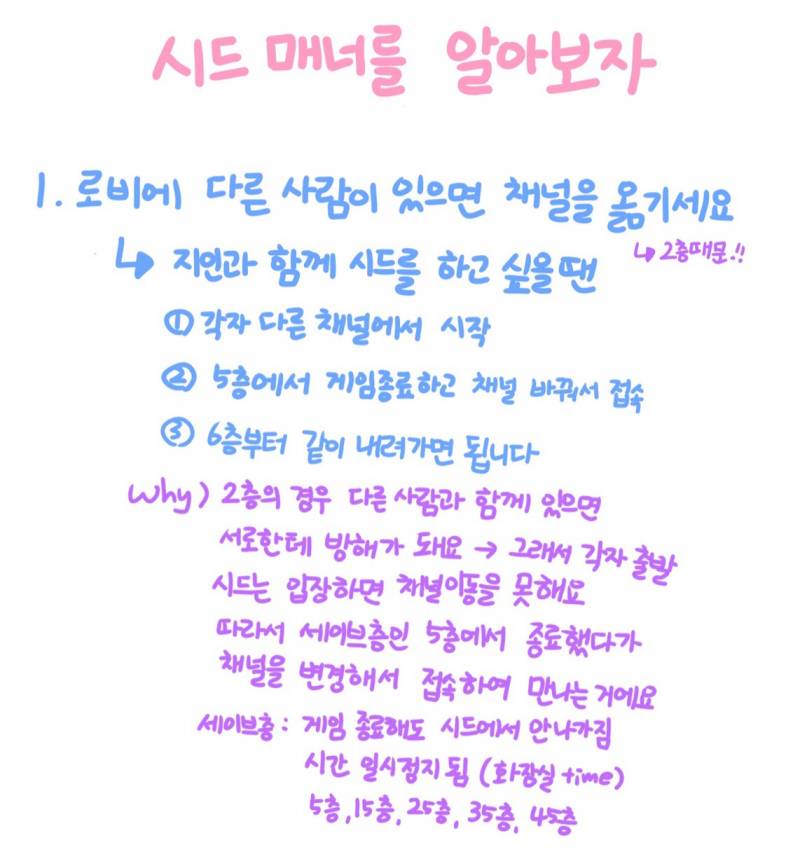 시드 매너를 알아보자
1. 로비에 다른 사람이 있으면 채널을 옮기세요
↳ 2층때문!!
↳ 지인과 함께 시드를 하고 싶을땐
① 각자 다른 채널에서 시작
② 5층에서 게임종료하고 채널 바꿔서 접속
③ 6층부터 같이 내려가면 됩니다
Why) 2층의 경우 다른 사람과 함께 있으면
서로한테 방해가 돼요 → 그래서 각자 출발
시드는 입장하면 채널이동을 못해요
따라서 세이브층인 5층에서 종료했다가
채널을 변경해서 접속하여 만나는 거에요
세이브층 : 게임 종료해도 시드에서 안나가짐
시간 일시정지 됨 (화장실 time)
5층, 15층, 25층, 35층, 45층